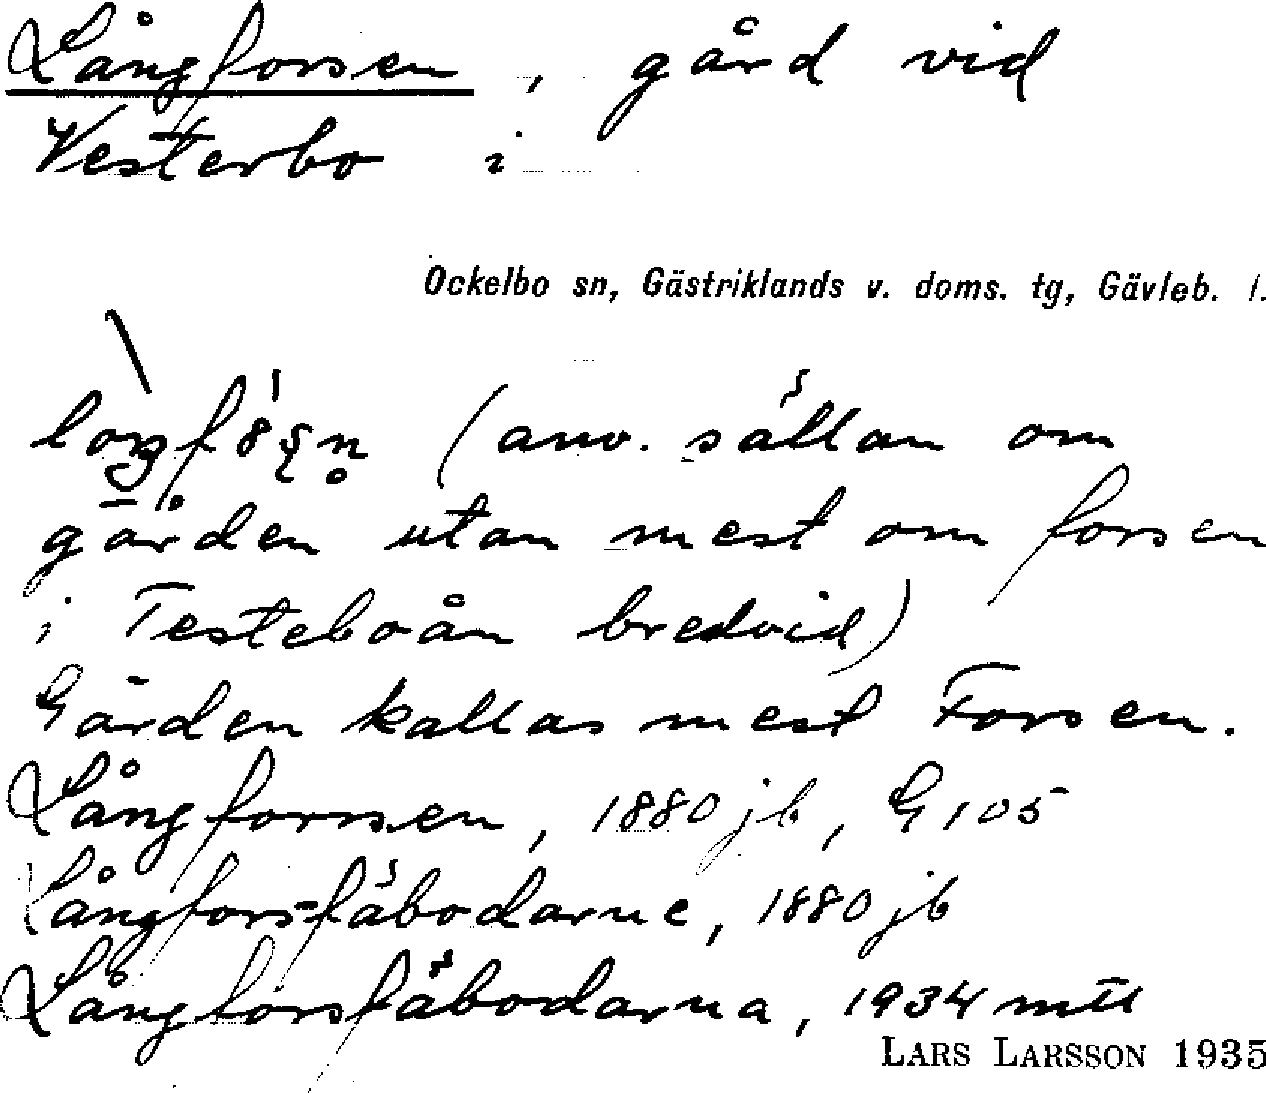 Långforsen, gård vid
Vesterbo i
Ockelbo sn, Gästriklands v. doms. tg, Gävleb. l.
(anv. sällan om
gården utan mest om forsen
i Testeboån bredvid)
Gården kallas mest Forsen.
Långforssen, 1880 jb, G 105
Långfors-fäbodarne, 1880 jb
Långforsfäbodarna, 1934 mtl
LARS LARSSON 1935